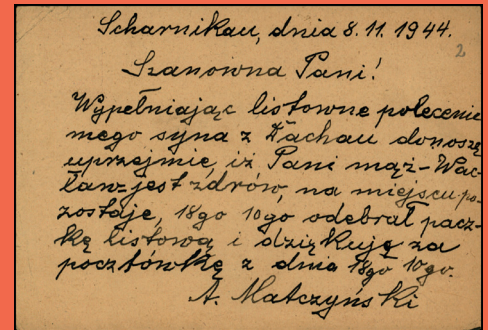 Scharnikau, dnia 8. 11. 1944.
2
Szanowna Pani!
Wypełniając listowne polecenie
mego syna z Dachau donoszę
uprzejmie, iż Pani mąż - Wac-
ław - jest zdrów, na miejscu po-
zostaje, 18go 10go odebrał pacz-
kę listową i dziękuję za
pocztówkę z dnia 18go 10go.
A. Matczyński